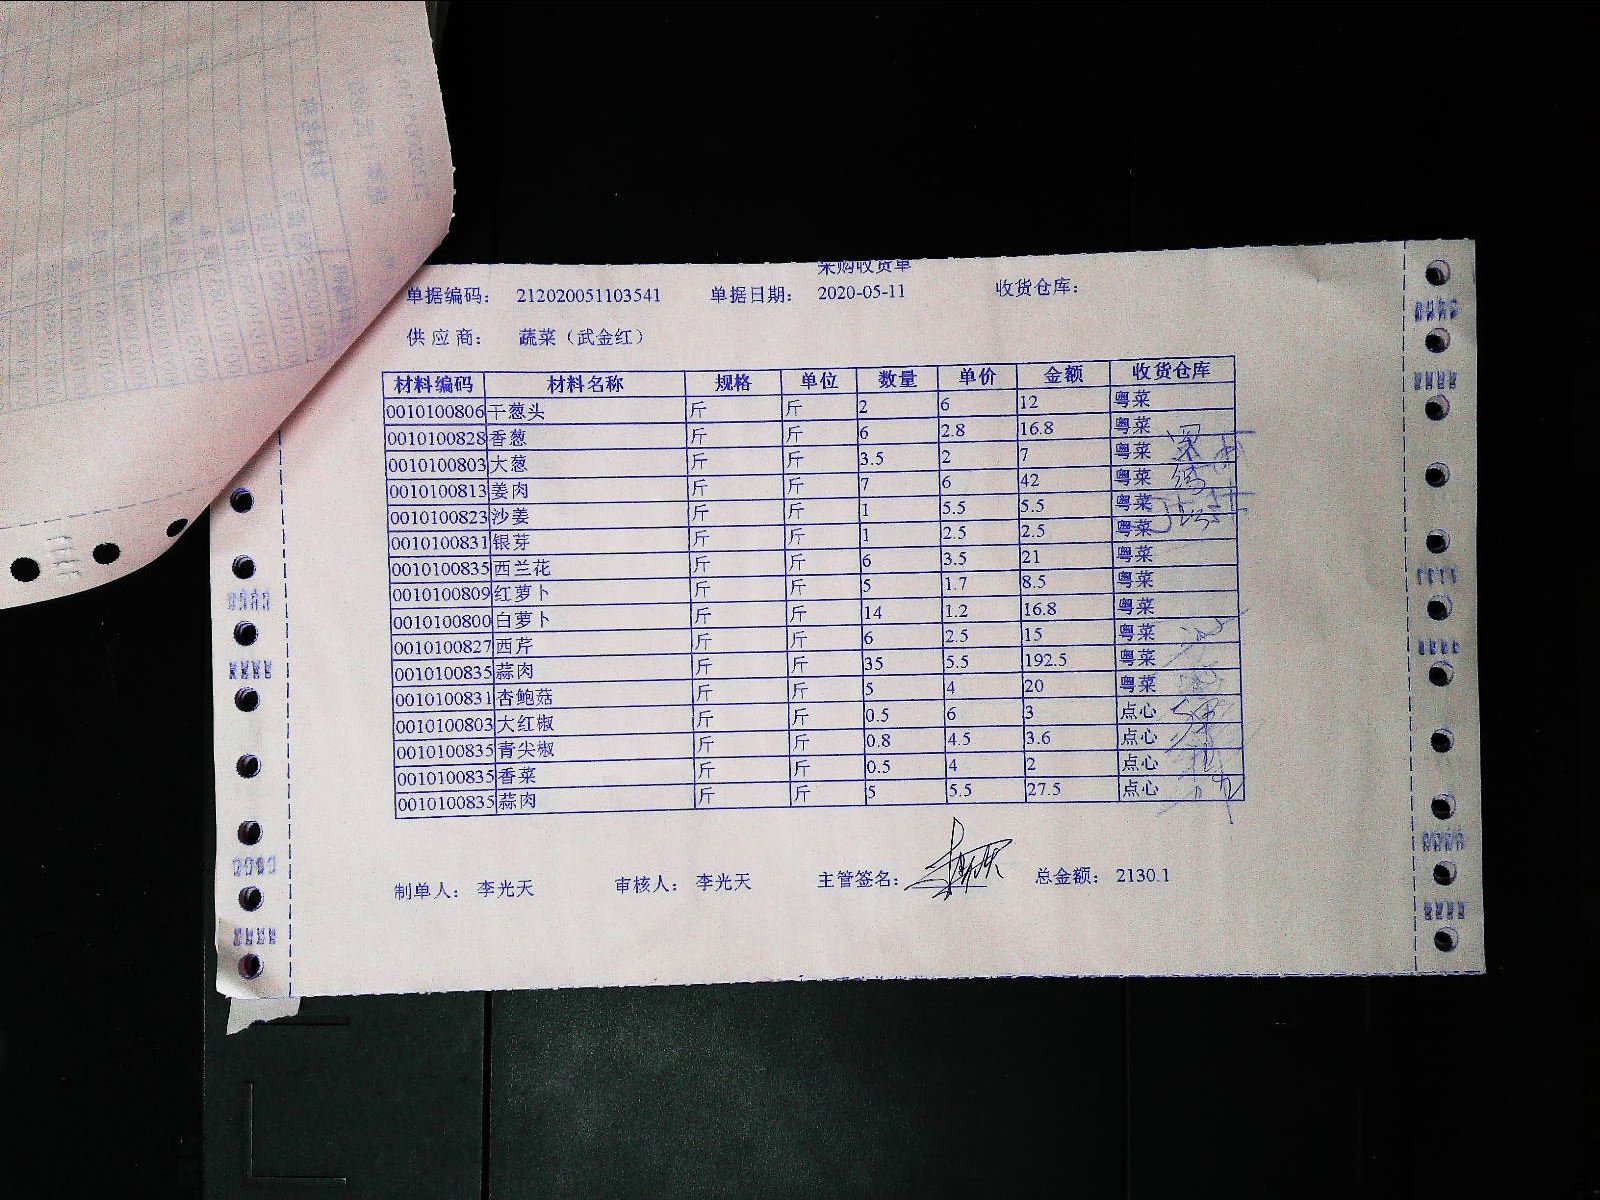 采购收货单
单据编码： 212020051103541 单据日期： 2020-05-11 收货仓库：
供应商： 蔬菜（武金红）
材料编码 材料名称 规格 单位 数量 单价 金额 收货仓库
0010100806 干葱头 斤 斤 2 6 12 粤菜
0010100828 香葱 斤 斤 6 2.8 16.8 粤菜
0010100803 大葱 斤 斤 3.5 2 7 粤菜
0010100813 姜肉 斤 斤 7 6 42 粤菜
0010100823 沙姜 斤 斤 1 5.5 5.5 粤菜
0010100831 银芽 斤 斤 1 2.5 2.5 粤菜
0010100835 西兰花 斤 斤 6 3.5 21 粤菜
0010100809 红萝卜 斤 斤 5 1.7 8.5 粤菜
0010100800 白萝卜 斤 斤 14 1.2 16.8 粤菜
0010100827 西芹 斤 斤 6 2.5 15 粤菜
0010100835 蒜肉 斤 斤 35 5.5 192.5 粤菜
0010100831 杏鲍菇 斤 斤 5 4 20 粤菜
0010100803 大红椒 斤 斤 0.5 6 3 点心
0010100835 青尖椒 斤 斤 0.8 4.5 3.6 点心
0010100835 香菜 斤 斤 0.5 4 2 点心
0010100835 蒜肉 斤 斤 5 5.5 27.5 点心
制单人： 李光天 审核人： 李光天 主管签名： 总金额： 2130.1